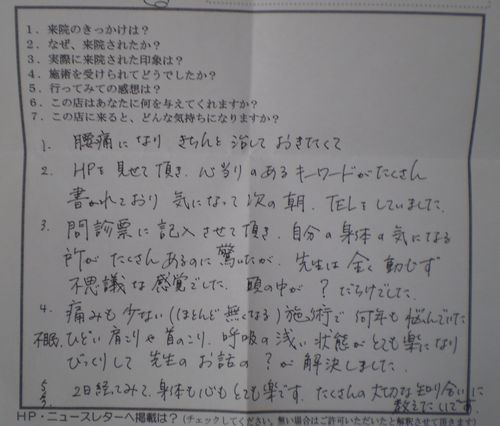 1．来院のきっかけは？
2．なぜ、来院されたか？
3．実際に来院された印象は？
4．施術を受けられてどうでしたか？
5．行ってみての感想は？
6．この店はあなたに何を与えてくれますか？
7．この店に来ると、どんな気持ちになりますか？
1. 腰痛になり きちんと治しておきたくて
2. HPを見せて頂き、心当りのあるキーワードがたくさん
書かれており 気になって次の朝、TELをしていました。
3. 問診票に記入させて頂き、自分の身体の気になる
所が たくさんあるのに驚いたが、先生は全く動じず
不思議な感覚でした。頭の中が？だらけでした。
4. 痛みも少ない(ほとんど無くなる)施術で 何年も悩んでいた
不眠、ひどい肩こりや首のこり、呼吸の浅い状態がとても楽になり
びっくりして 先生のお話の？が解決しました。
5 2日経てみて、身体も心もとても楽です。たくさんの大切な知り合いに
教えたいです。
HP・ニュースレターへ掲載は？（チェックしてください。無い場合はご許可いただいたと解釈させて頂きます）